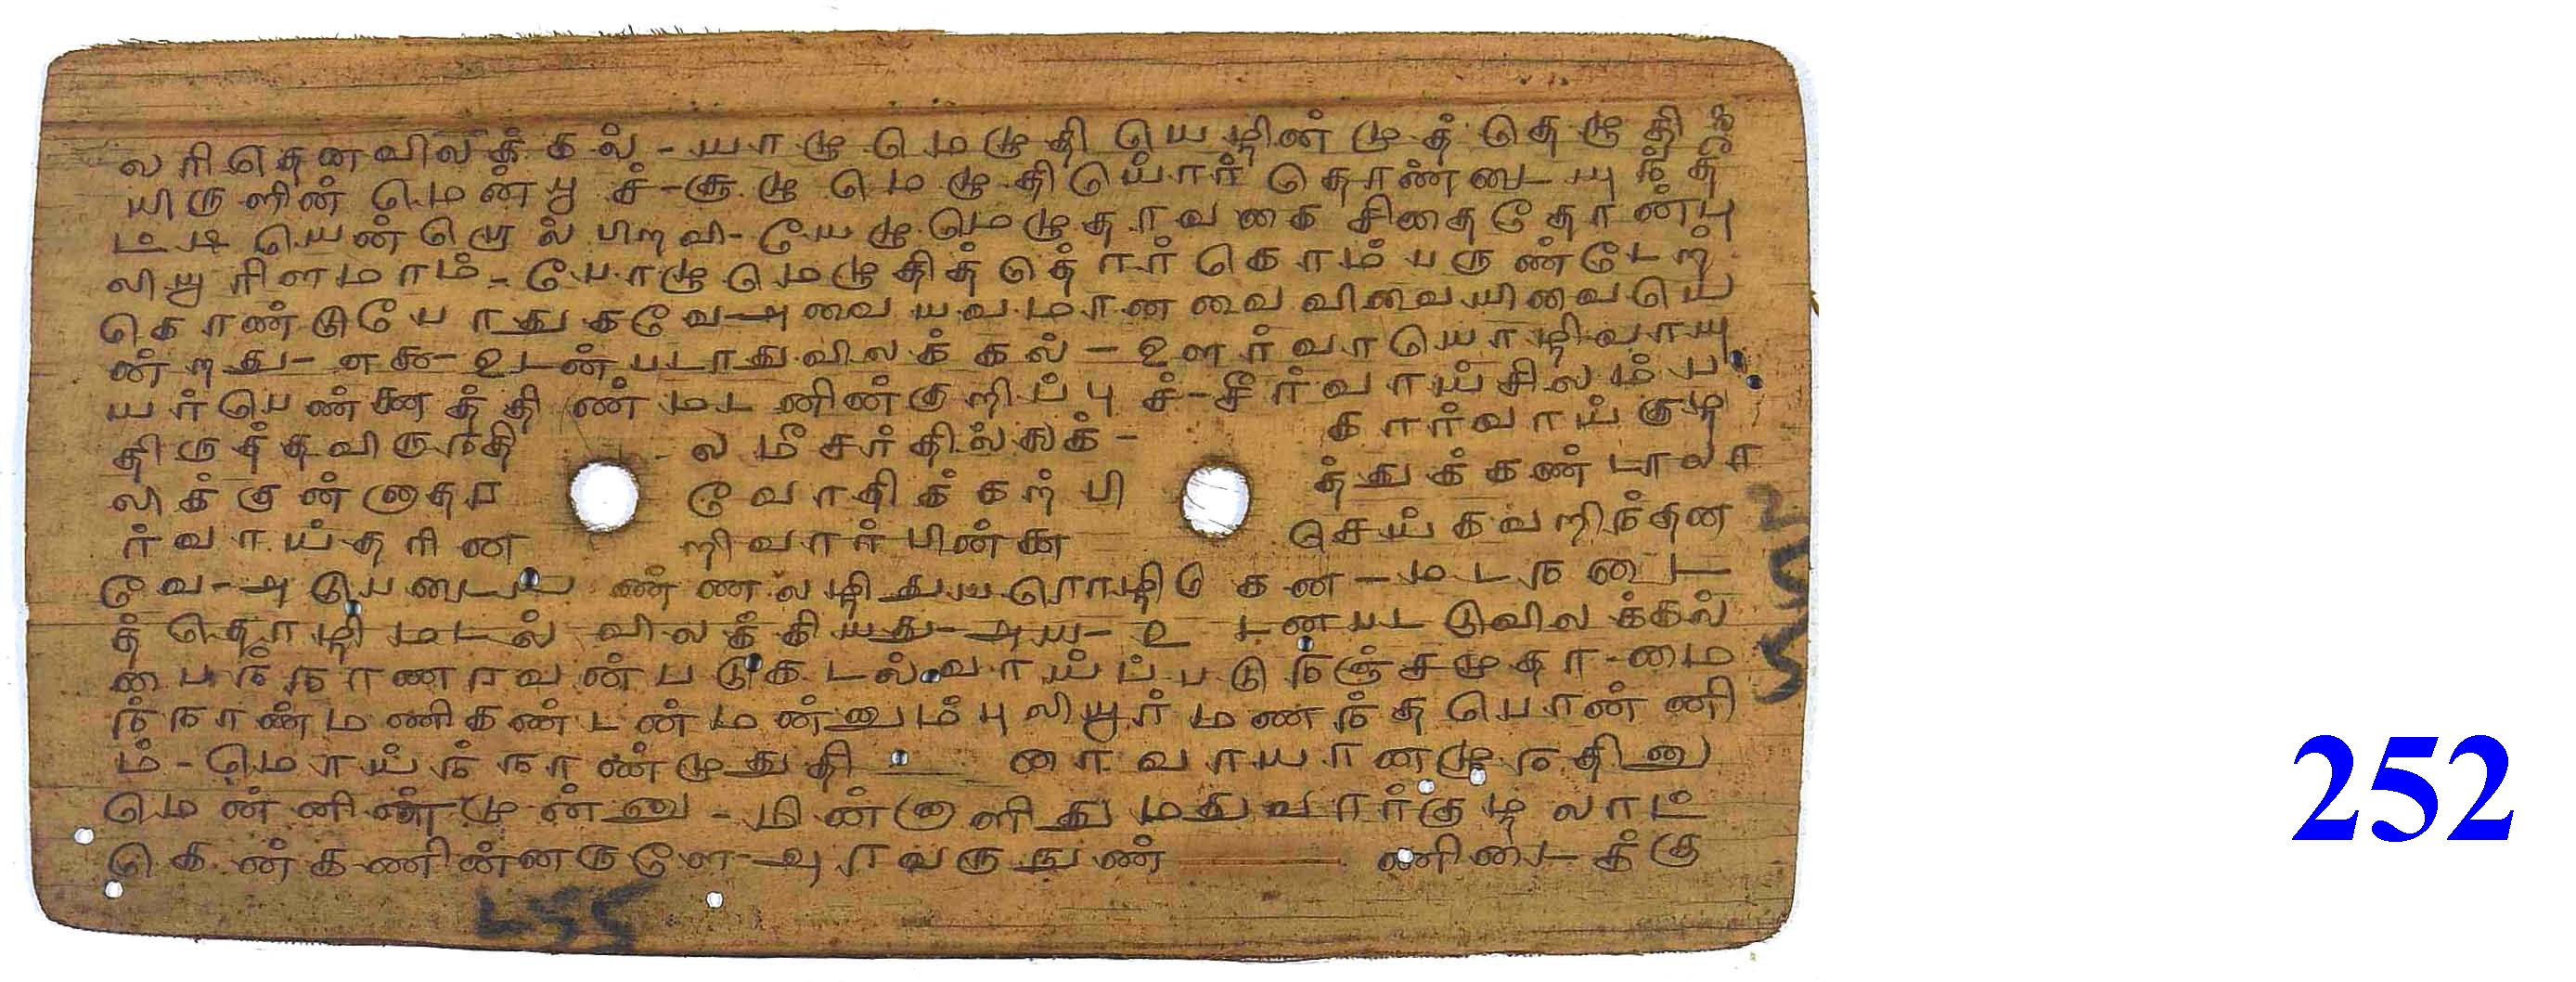 லரிதெனவிலக்கல் - யாழு மெழுதி யெழின் முத் தெழுதி
யிருளின் மென்பூ ச் - சூழு மெழுதியொர் தொண்டையுந்தீ
ட்டி யென் றொல் பிறவி - யேழு மெழுதாவகை சிதைதோன்பு
லியூரிளமாம் - போழு மெழுதித்தொர் கொம்பருண்டேற்
கொண்டுபோதுகவே - அவை யவமானவை விவையிவையெ
ன்றது - எசு - உடன்படாதுவிலக்கல் - உளர்வாயொழிவாயு
யர்பெண்ணத்திண்மடனின்குறிப்பு ச் - சீர்வாய்சிலம்ப
திருத்தவிருந்தி லமீசர்தில்லைக் - கார்வாய்குழ
லிக்குன்னாதர வோதிக்கற்பி த்துக்கண்டாலா
ர்வாய்தரின றிவார்பின்னை செய்கவறிந்தன
வே - அடுபடைப ண்ணலழிதுயரொழிகென - மடநடை
த் தொழிமடல் விலக்கியது - அய - உடன்படடுவிலக்கல்
பைந்நாணரவன்படுகடல்வாய்ப்படுநஞ்சமுதா - மை
ந்நாண்மணிகண்டன்மன்னும்புலியூர்மணந்தபொண்ணி
ம் - மொய்ந்நாண்முதுதி ரைவாயானழுந்தினு
மென்னின்முன்னு - மின்னாளிதுமதுவார்குழலாட்
கென்கணின்னருளே - அரவருநுண் ணிடைக்கு
255
252